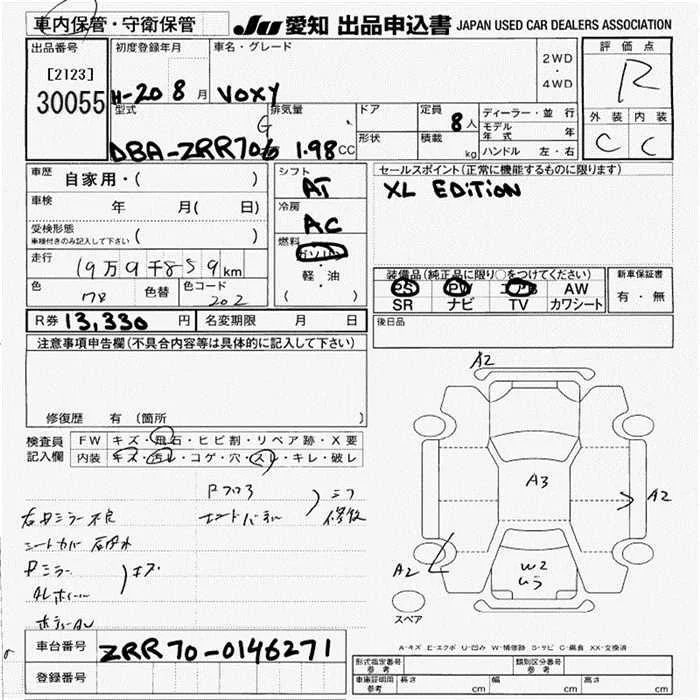 車内保管・守衛保管
JU 愛知 出品申込書 JAPAN USED CAR DEALERS ASSOCIATION
出品番号
[2123]
30055
初度登録年月
H-20 8月
車名・グレード
VOXY
2WD
・
4WD
評価点
R
型式
DBA-ZRR70G
G
排気量
1.98 CC
ドア
形状
定員
8人
積載
kg
ディーラー・並 行
モデル年式 年
ハンドル 左・右
外装 内装
C C
車歴
自家用・( )
車検
年 月( 日)
受検形態
車検付きのみ記入して下さい ( )
走行
19万9千859km
色
色替
色コード
202
シフト
AT
冷房
AC
燃料
ガソリン
・
軽・油
( )
セールスポイント(正常に機能するものに限ります)
XL EDiTiON
装備品(純正品に限り○をつけてください)
PS PW エアB AW
SR ナビ TV カワシート
新車保証書
有・無
R券 13,330円 名変期限 月 日
後日品
注意事項申告欄(不具合内容等は具体的に記入して下さい)
修復歴 有 (箇所 )
検査員
記入欄
FW キズ・飛石・ヒビ割・リペア跡・X要
内装 キズ・汚レ・コゲ・穴・スレ・キレ・破レ
Fフロア
エンドパネル
修復
右ミラー不良
シートカバー
ミラー
A2
A3
A2
A2
W2
スペア
A-キズ E-エクボ U-凹み W-補修跡 S-サビ C-腐食 XX-交換済
車台番号 ZRR70-0146271
登録番号
形式指定番号
参考
類別区分番号
参考
車庫証明用
参考
長さ cm 幅 cm 高さ cm